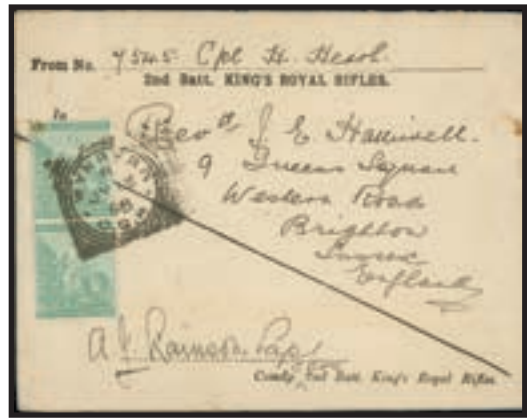 From No. 7545 Cpl H.
2nd Batt. KING'S ROYAL RIFLES.
To
Revd J. E.
9 Queens Square
Western Road
Brighton
Sussex
England
A J
Comdg. 2nd Batt. King's Royal Rifles.